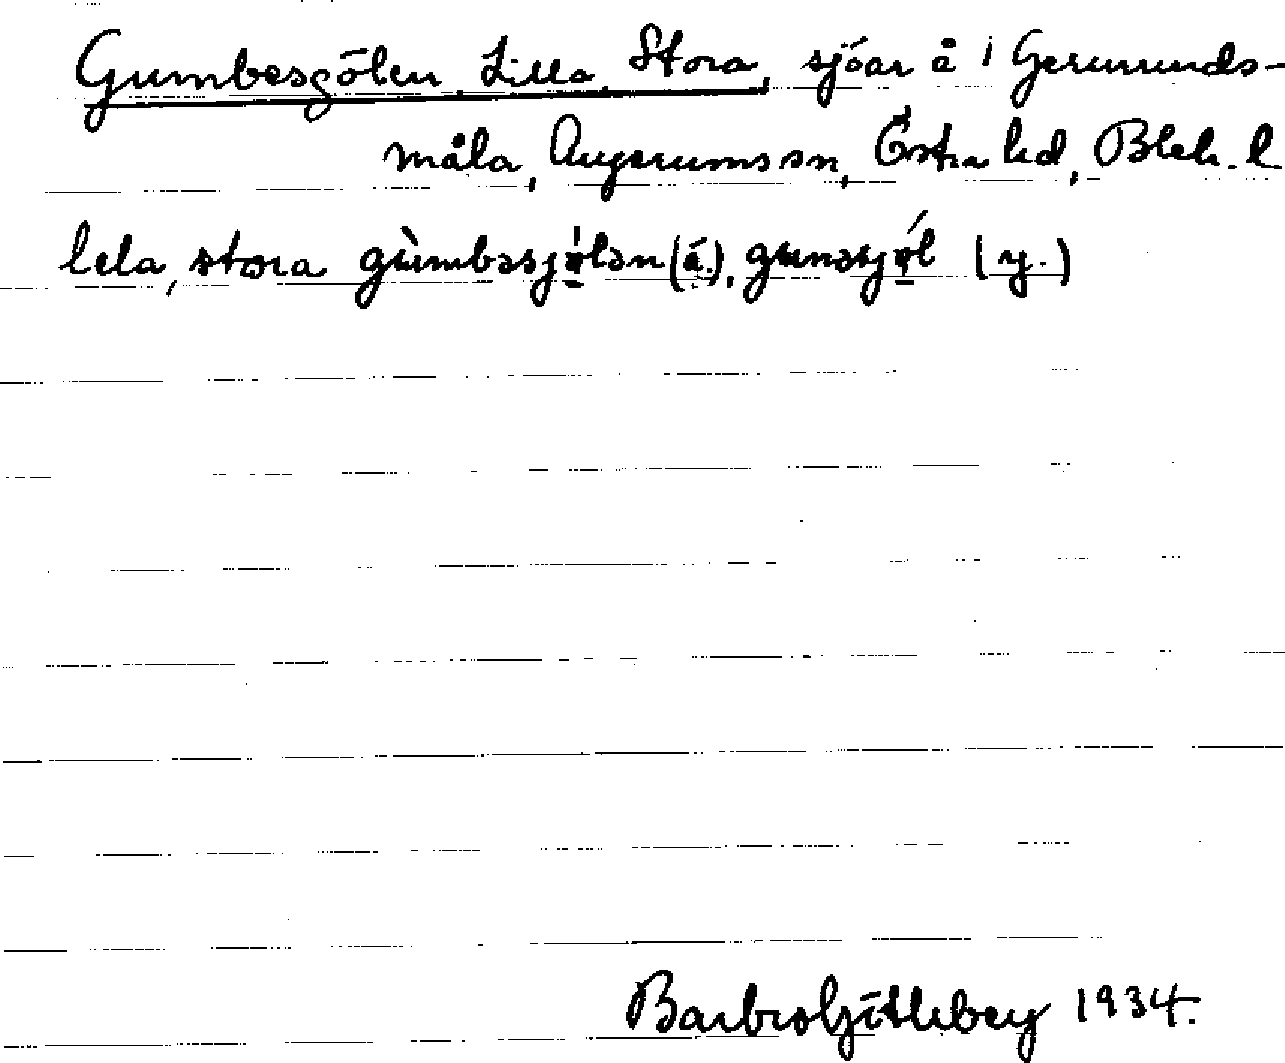 Gumbesgölen, Lilla, Stora, sjöar å i Germunds-
måla, Augerums sn, Östra hd, Blek. l.
lela, stora gùmbəsjø̀lən (ä.), gunəsjǿl (y.)
Barbro 1934.